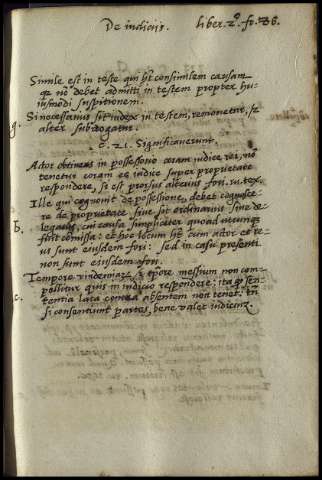 De iudiciis. liber. 2. fo. 36.
Simile est in teste qui ht consimilem causam
qr nō debet admitti in testem propter hu-
iusmodi suspitionem.
Si necessarius sit iudex in testem, remouetur, &
g. alter subrogatur.
c. 21. Significauerunt.
Actor obtinens in possessorio coram iudice rei, nō
tenetur coram eo iudice super proprietate
respondere, si est prorsus alterius fori. in. tex.
Ille qui cognouit de possessione, debet cognosce-
re de proprietate siue sit ordinarius siue de-
b. legatus, cui causa simpliciter quoad utrunque
fuit comissa: et hoc locum ht cum actor et re-
us sunt eiusdem fori: sed in casu presenti
non sunt eiusdem fori.
Tempore vindemiarz & tpore messium non com-
pellitur quis in iudicio respondere: ita q sen-
c. tentia lata contra absentem non tenet. tn
si consentiunt partes, bene valet iudiciuz.